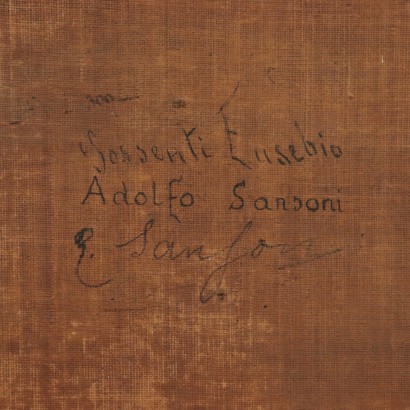 Sorsenti Eusebio
Adolfo Sansoni
E. Sanson